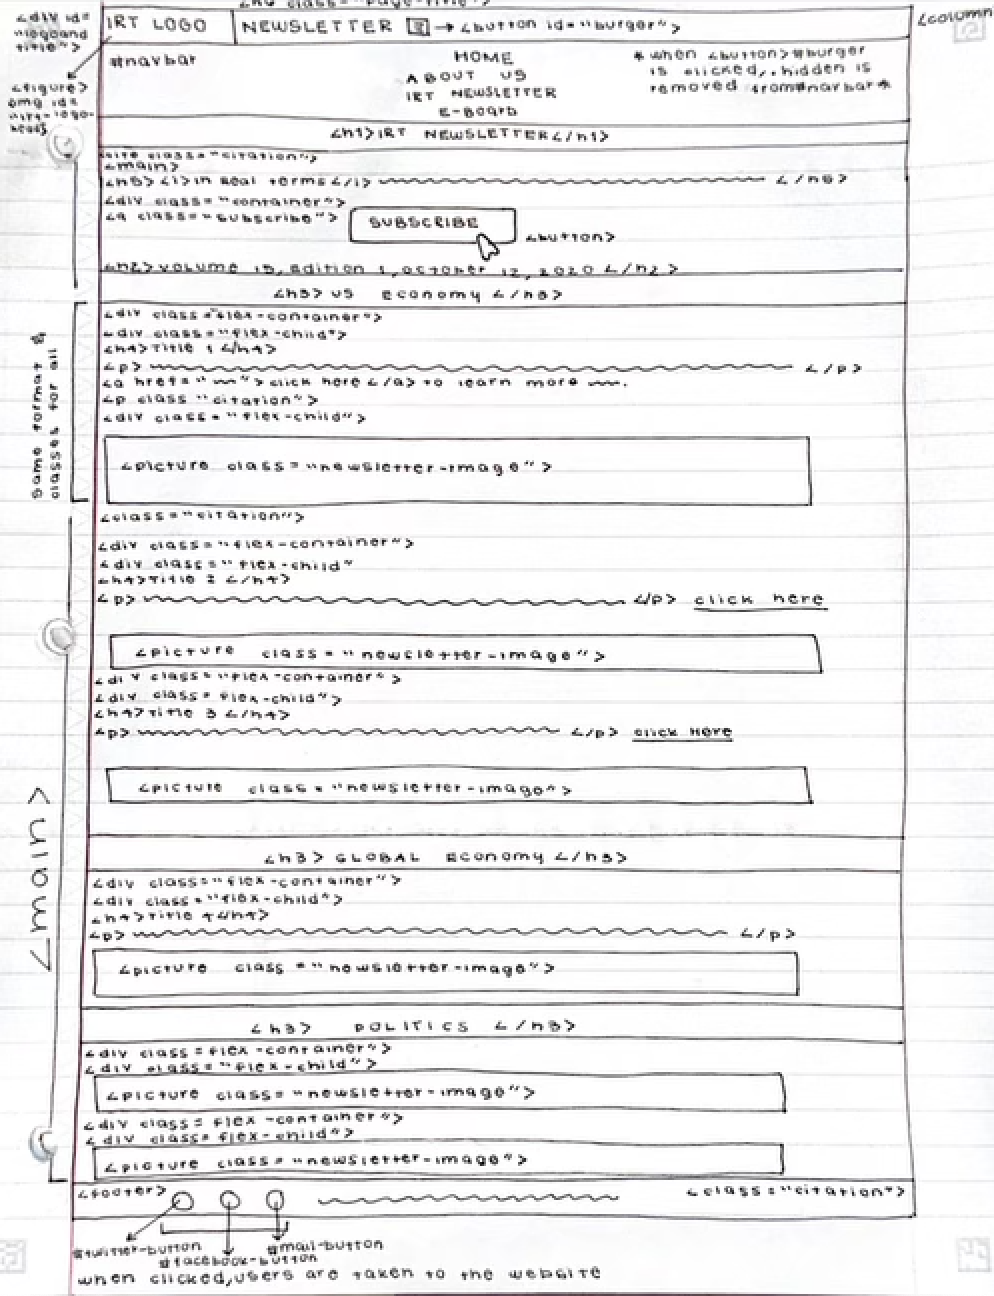 class="page-title">
<div id=
"logoand
title">
IRT LOGO
NEWSLETTER → <button id="burger">
<column
<figure>
img id=
#navbar
HOME
ABOUT US
IRT NEWSLETTER
E-Board
* when <button>#burger
is clicked, .hidden is
removed from#navbar*
<h1>IRT NEWSLETTER</h1>
<cite class="citation">
<main>
<h6><i>in Real terms</i> </h6>
<div class="container">
<a class="subscribe">
SUBSCRIBE
<button>
<h2>volume 15, Edition 1, October 12, 2020 </h2>
<h3> US Economy </h3>
Same format &
classes for all
<div class=flex-container">
<div class="flex-child">
<h4>Title 1 </h4>
<p> </p>
<a href=" "> click here </a> to learn more .
<p class "citation">
<div class="flex-child">
<picture class="newsletter-image">
<class="citation">
<div class="flex-container">
<div class="flex-child"
<h4>Title 2 </h4>
<p> </p> click here
<picture class="newsletter-image">
<div class="flex-container">
<div class= flex-child">
<h4>Title 3 </h4>
<p> </p> click Here
<picture class="newsletter-image">
<main>
<h3> GLOBAL Economy </h3>
<div class="flex-container">
<div class="flex-child">
<h4>Title 4</h4>
<p> </p>
<picture class ="newsletter-image">
<h3> POLITICS </h3>
<div class=flex-container">
<div class="flex-child">
<picture class="newsletter-image">
<div class= flex-container">
<div class= flex-child">
<picture class="newsletter-image">
<footer>
<class="citation">
#twitter-button
#facebook-button
#mail-button
when clicked, users are taken to the website